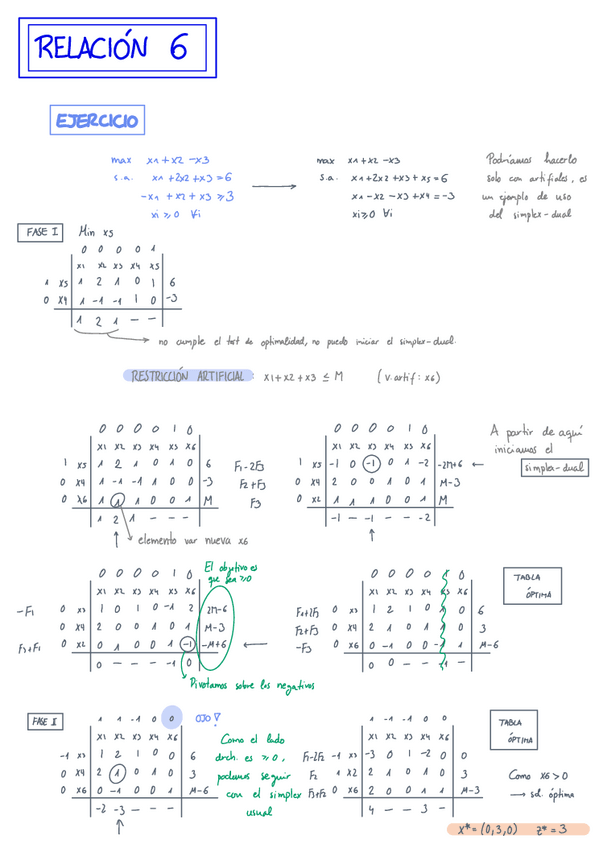 RELACIÓN 6
EJERCICIO
max x1+x2-x3
s.a. x1+2x2+x3=6
-x1+x2+x3≥3
xi≥0 ∀i
max x1+x2-x3
s.a. x1+2x2+x3+x5=6
x1-x2-x3+x4=-3
xi≥0 ∀i
Podríamos hacerlo
solo con artifiales, es
un ejemplo de uso
del simplex-dual
FASE I Min x5
0 0 0 0 1
x1 x2 x3 x4 x5
1 x5 1 2 1 0 1 6
0 x4 1 -1 -1 1 0 -3
1 2 1 - -
no cumple el test de optimalidad, no puedo iniciar el simplex-dual.
RESTRICCIÓN ARTIFICIAL: x1+x2+x3≤M (v.artif: x6)
0 0 0 0 1 0
x1 x2 x3 x4 x5 x6
1 x5 1 2 1 0 1 0 6 F1-2F3
0 x4 1 -1 -1 1 0 0 -3 F2+F3
0 x6 1 1 1 0 0 1 M F3
1 2 1 - - -
elemento var nueva x6
0 0 0 0 1 0
x1 x2 x3 x4 x5 x6
1 x5 -1 0 -1 0 1 -2 -2M+6 ←
0 x4 2 0 0 1 0 1 M-3
0 x2 1 1 1 0 0 1 M
-1 - -1 - - -2
A partir de aquí
iniciamos el
simplex-dual
El objetivo es
que sea ≥0
0 0 0 0 1 0
x1 x2 x3 x4 x5 x6
-F1 0 x3 1 0 1 0 -1 2 2M-6
0 x4 2 0 0 1 0 1 M-3
F3+F1 0 x2 0 1 0 0 1 -1 -M+6 ←
0 - - - -1 0
Pivotamos sobre los negativos
0 0 0 0 1 0
x1 x2 x3 x4 x5 x6
F1+2F3 0 x3 1 2 1 0 1 0 6
F2+F3 0 x4 2 1 0 1 1 0 3
-F3 0 x6 0 -1 0 0 -1 1 M-6
0 0 - - -1 -
TABLA
ÓPTIMA
FASE II
1 1 -1 0 0 OJO!
x1 x2 x3 x4 x6
-1 x3 1 2 1 0 0 6
0 x4 2 1 0 1 0 3
0 x6 0 -1 0 0 1 M-6
-2 -3 - - -
Como el lado
drch. es ≥0,
podemos seguir
con el simplex
usual
1 -1 -1 0 0
x1 x2 x3 x4 x6
F1-2F2 -1 x3 -3 0 1 -2 0 0
F2 1 x2 2 1 0 1 0 3
F3+F2 0 x6 2 0 0 1 1 M-3
4 - - 3 -
TABLA
ÓPTIMA
Como x6>0
→ sol. óptima
x*=(0,3,0) z*=3